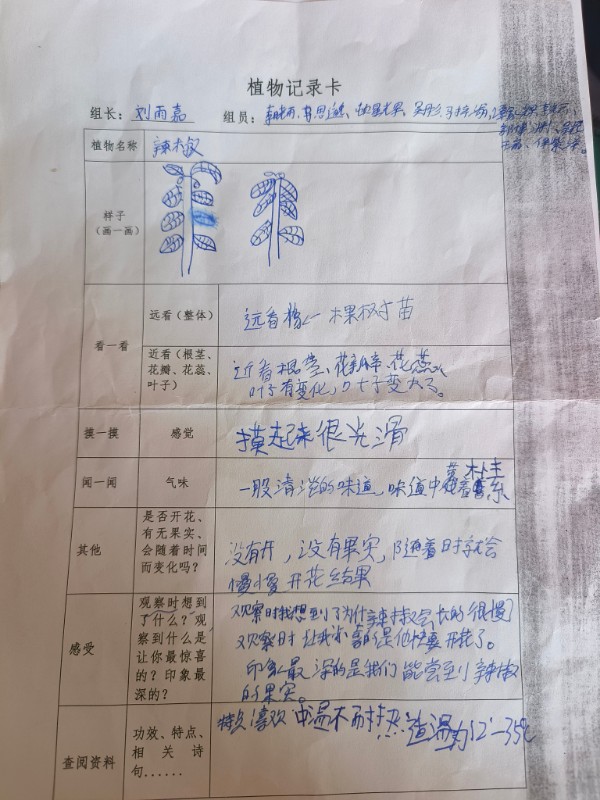 植物记录卡
组长：刘雨嘉 组员：
植物名称 辣椒
样子
（画一画）
看一看
远看（整体） 远看像一棵树苗
近看（根茎、
花瓣、花蕊、
叶子）
近看根茎、花瓣、花蕊、
叶子有变化，叶子变大了。
摸一摸 感觉 摸起来很光滑
闻一闻 气味 一股清淡的味道，味道中
其他
是否开花、
有无果实、
会随着时间
而变化吗？
没有开，没有果实，随着时
慢慢开花结果
感受
观察时想到
了什么？观
察到什么是
让你最惊喜
的？印象最
深的？
观察时我想到了为什辣椒会长的很慢
观察时让我 喜的是他快要开花了。
印象最深的是我们能尝到辣椒
的果实。
查阅资料
功效、特点、
相关诗
句……
特点喜欢 温不耐热 温为12-35℃